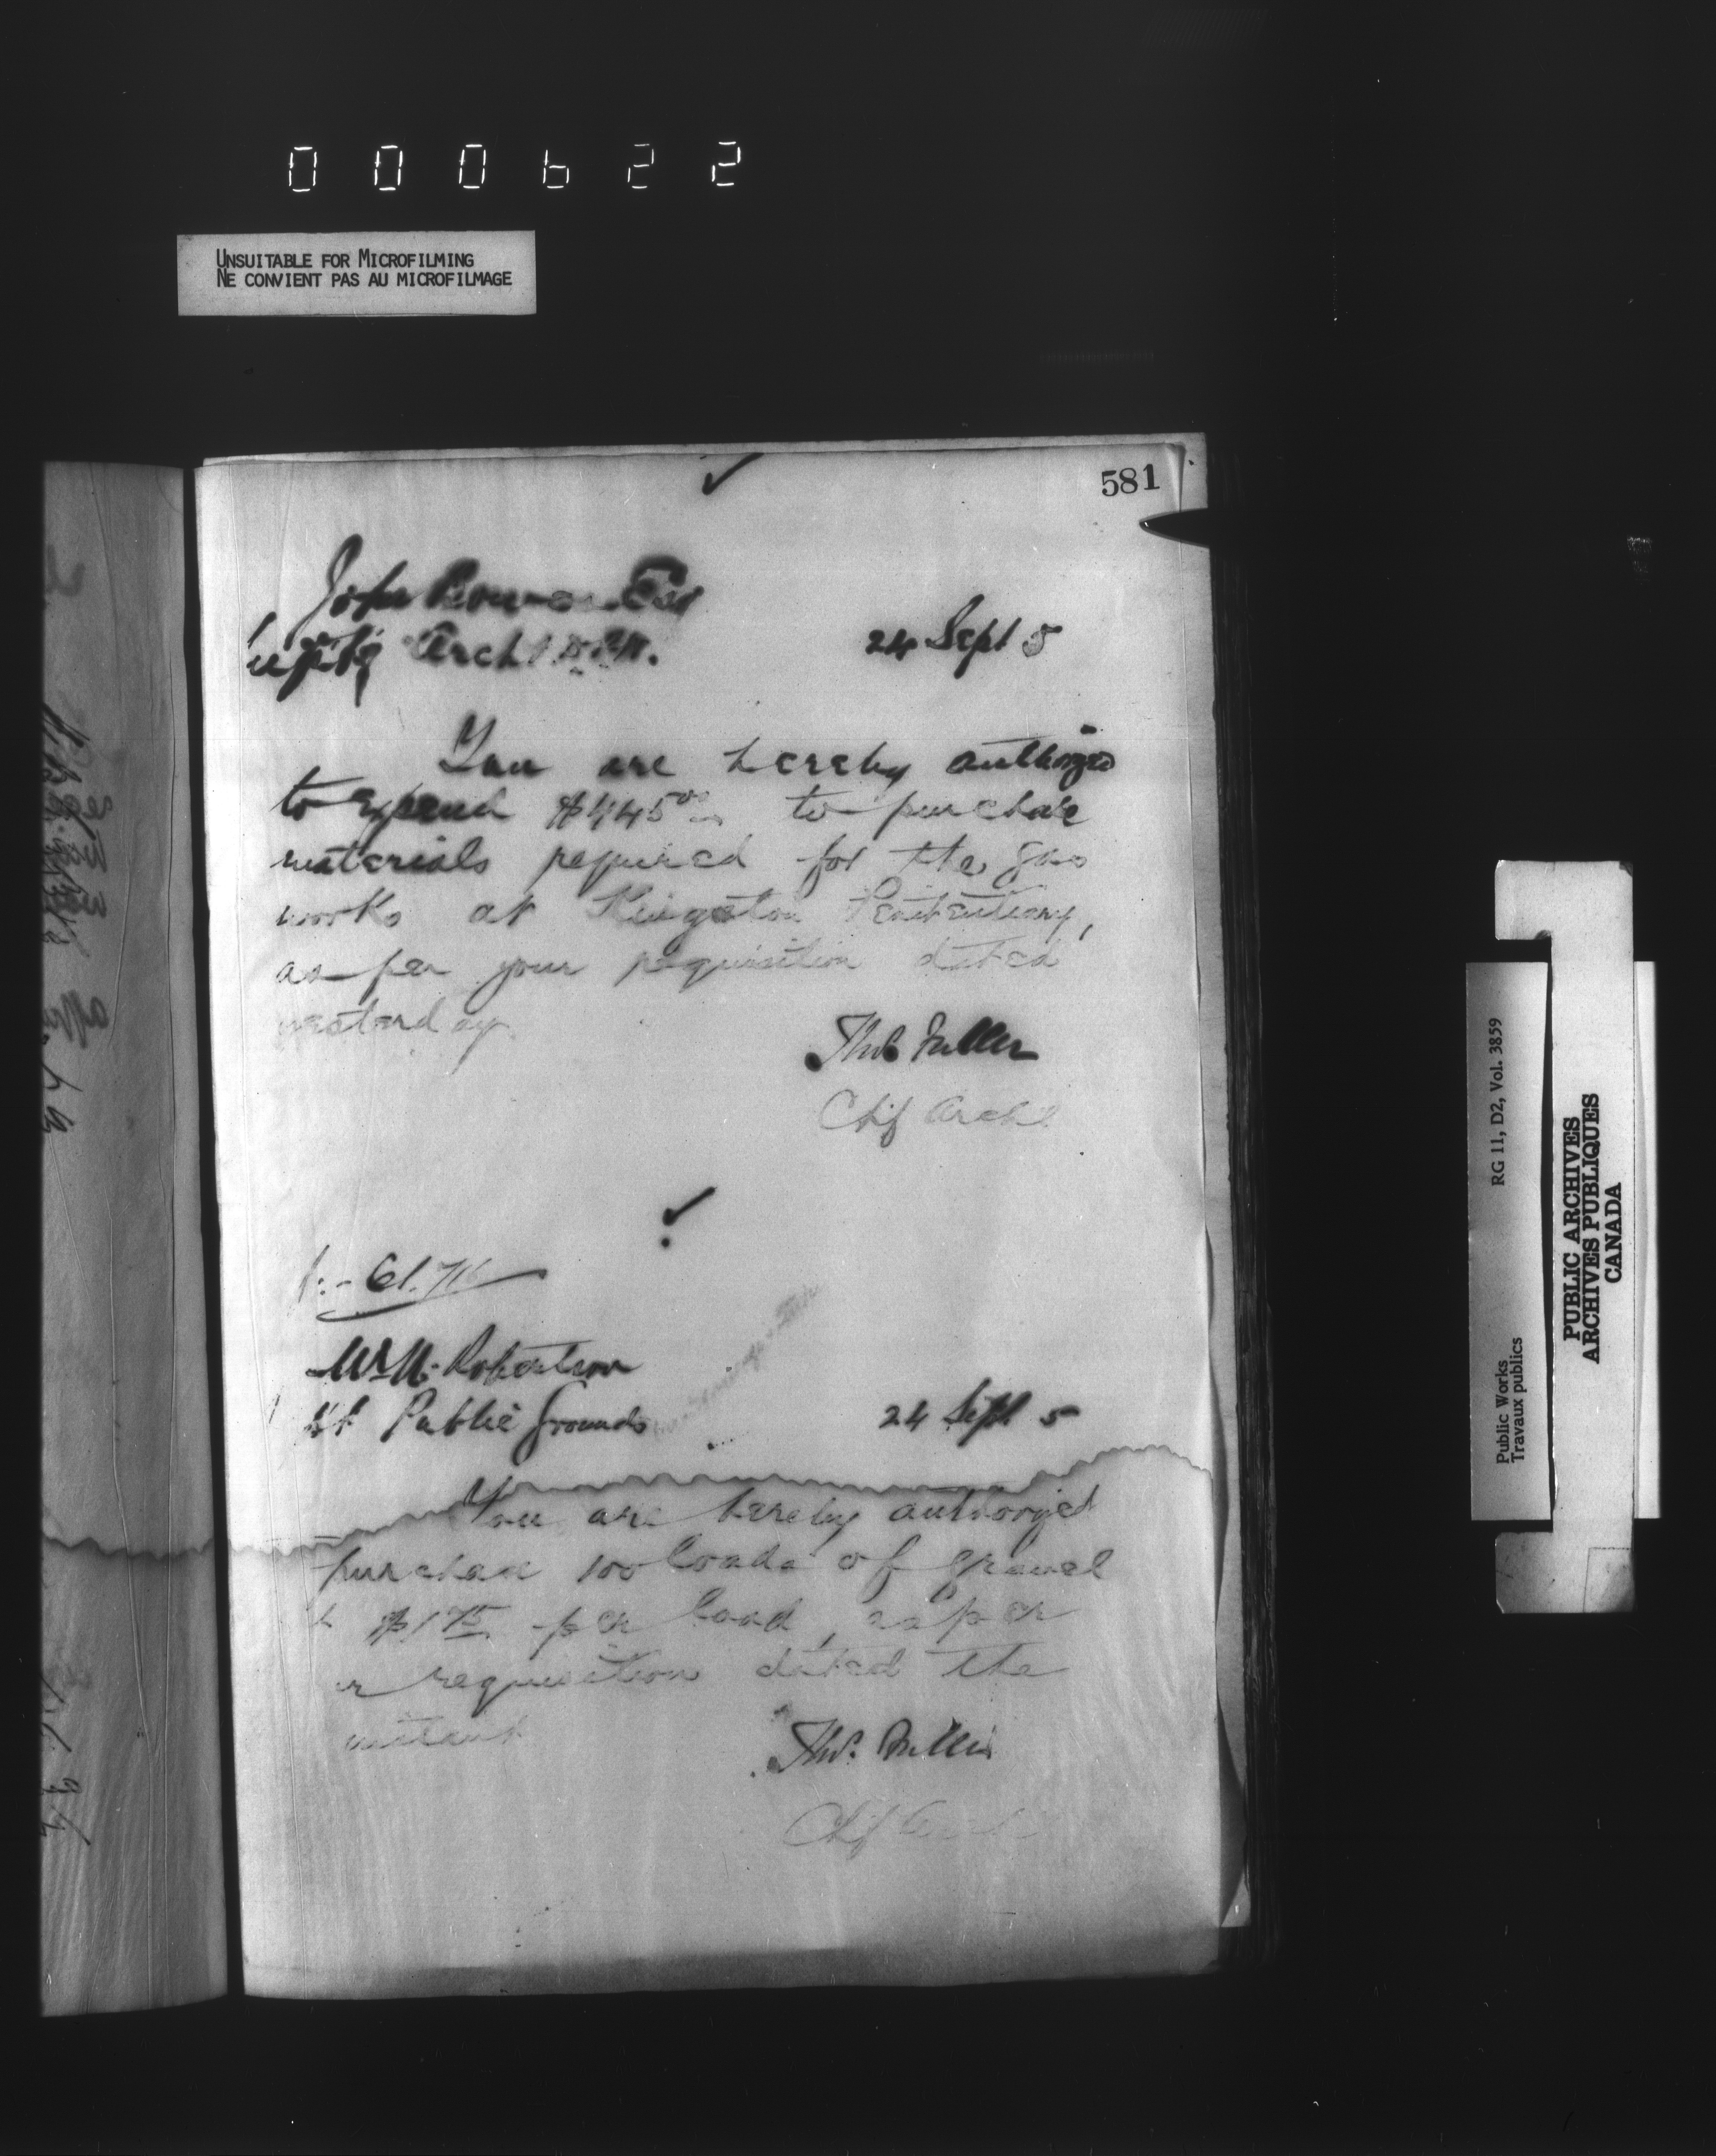 000622
UNSUITABLE FOR MICROFILMING
NE CONVIENT PAS AU MICROFILMAGE
581
John Bowes Esq
Arch! D.P.W.
24 Sept 5
You are hereby authorized
to expend $445 00 to purchase
materials required for the gas
works at Kingston Penitentiary,
as per your requisition dated
yesterday
Thos Fuller
Chf Archt
61.711
Mr N. Robertson
Supt Public Grounds
24 Sept 5
You are hereby authorized
purchase 100 loads of gravel
$1 75 per load, as per
requisition dated the
instant
Thos. Fuller
Chf Archt
Public Works
Travaux publics
RG 11, D2, Vol. 3859
PUBLIC ARCHIVES
ARCHIVES PUBLIQUES
CANADA